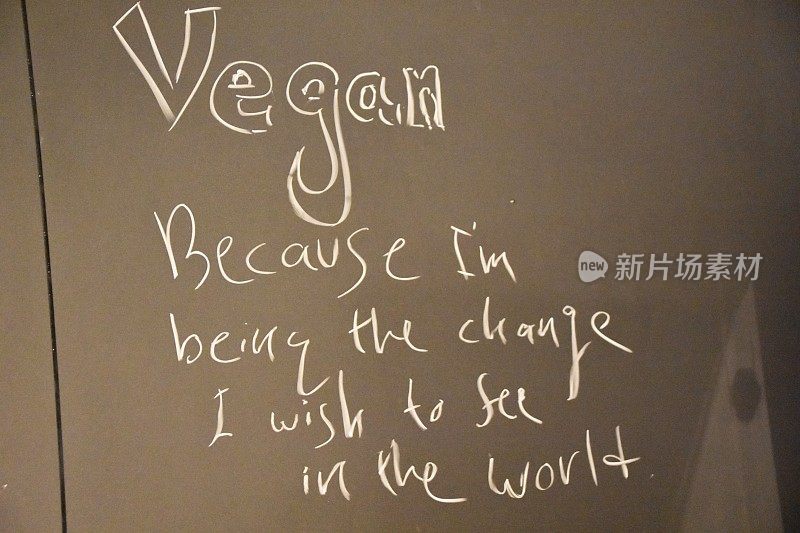 Vegan
Because I'm
new 新片场素材
being the change
I wish to see
in the world.